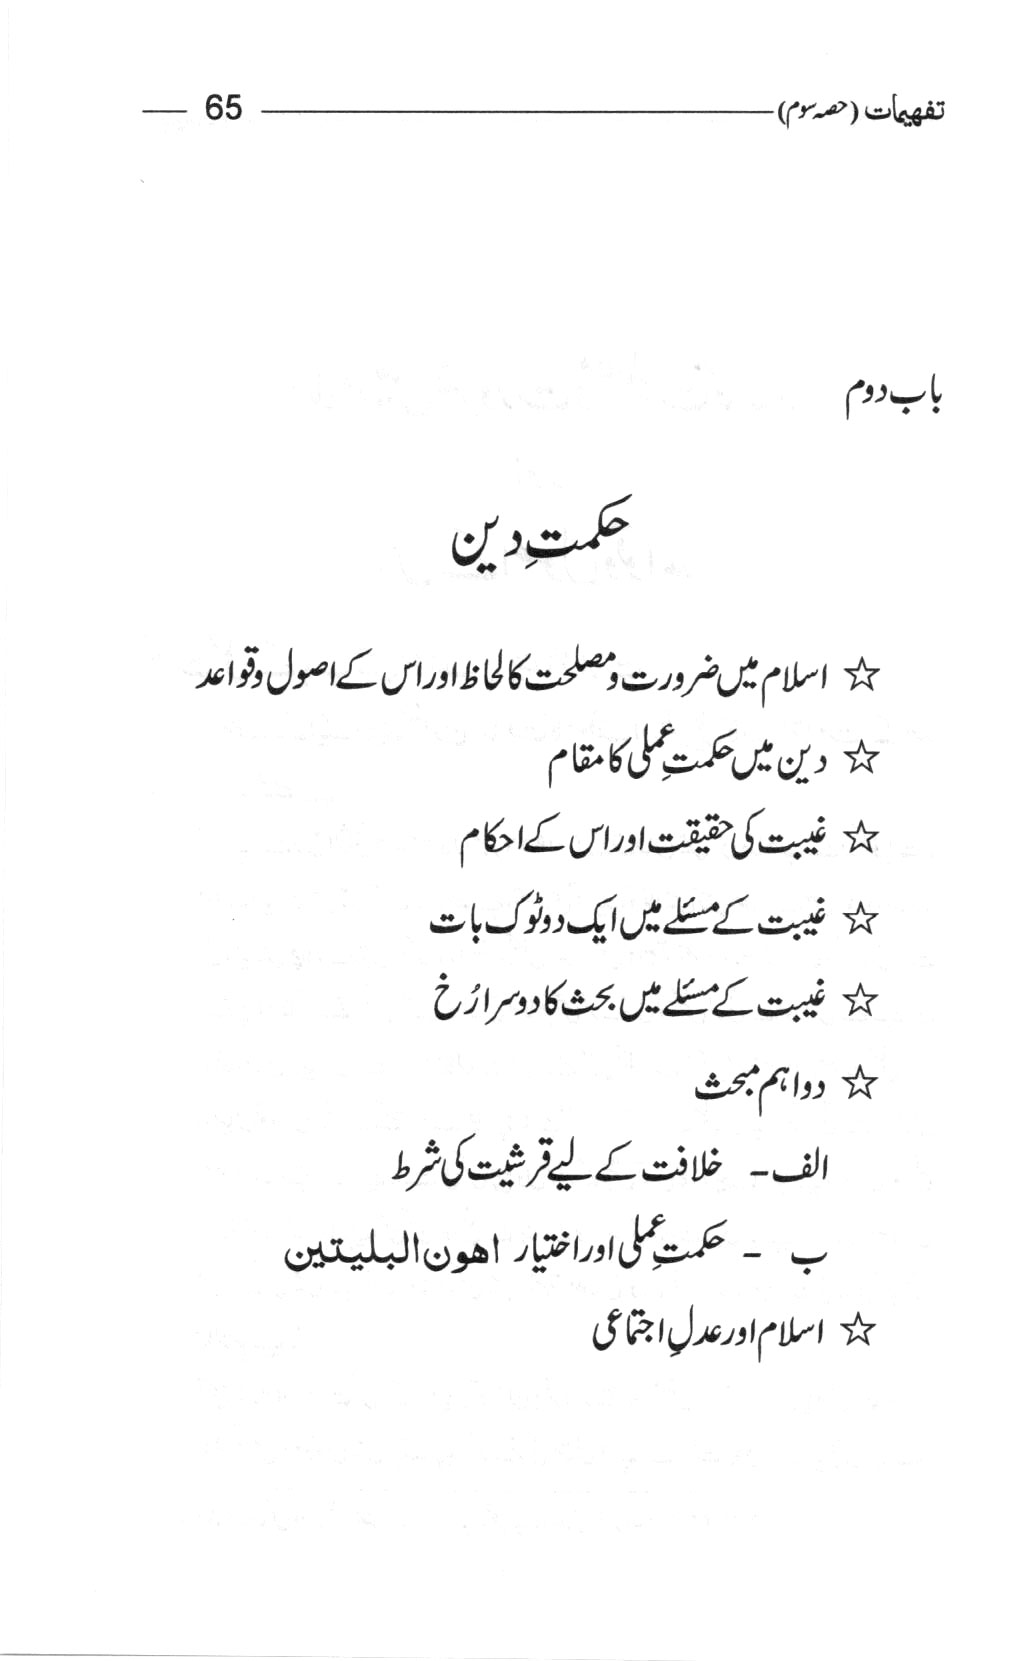 تفہیمات (حصہ سوم) 65
باب دوم
حکمتِ دین
☆ اسلام میں ضرورت و مصلحت کا لحاظ اور اس کے اصول و قواعد
☆ دین میں حکمتِ عملی کا مقام
☆ غیبت کی حقیقت اور اس کے احکام
☆ غیبت کے مسئلے میں ایک دوٹوک بات
☆ غیبت کے مسئلے میں بحث کا دوسرا رُخ
☆ دو اہم مبحث
الف ـ خلافت کے لیے قرشیت کی شرط
ب ـ حکمتِ عملی اور اختیار اھون البلیتین
☆ اسلام اور عدلِ اجتماعی